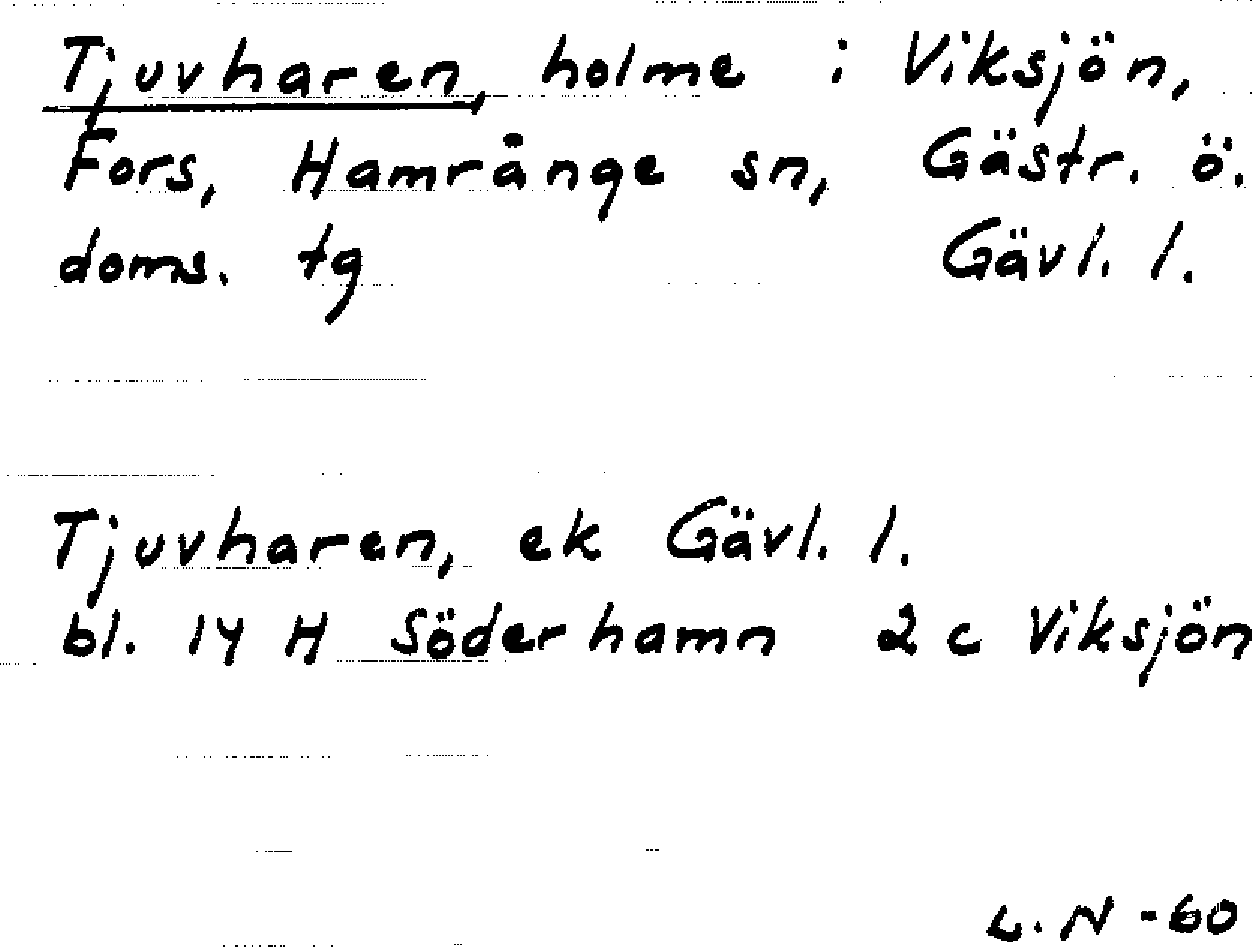 Tjuvharen, holme i Viksjön,
Fors, Hamrånge sn, Gästr. ö.
doms. tg Gävl. l.
Tjuvharen, ek Gävl. l.
bl. 14 H Söderhamn 2 c Viksjön
L. N -60